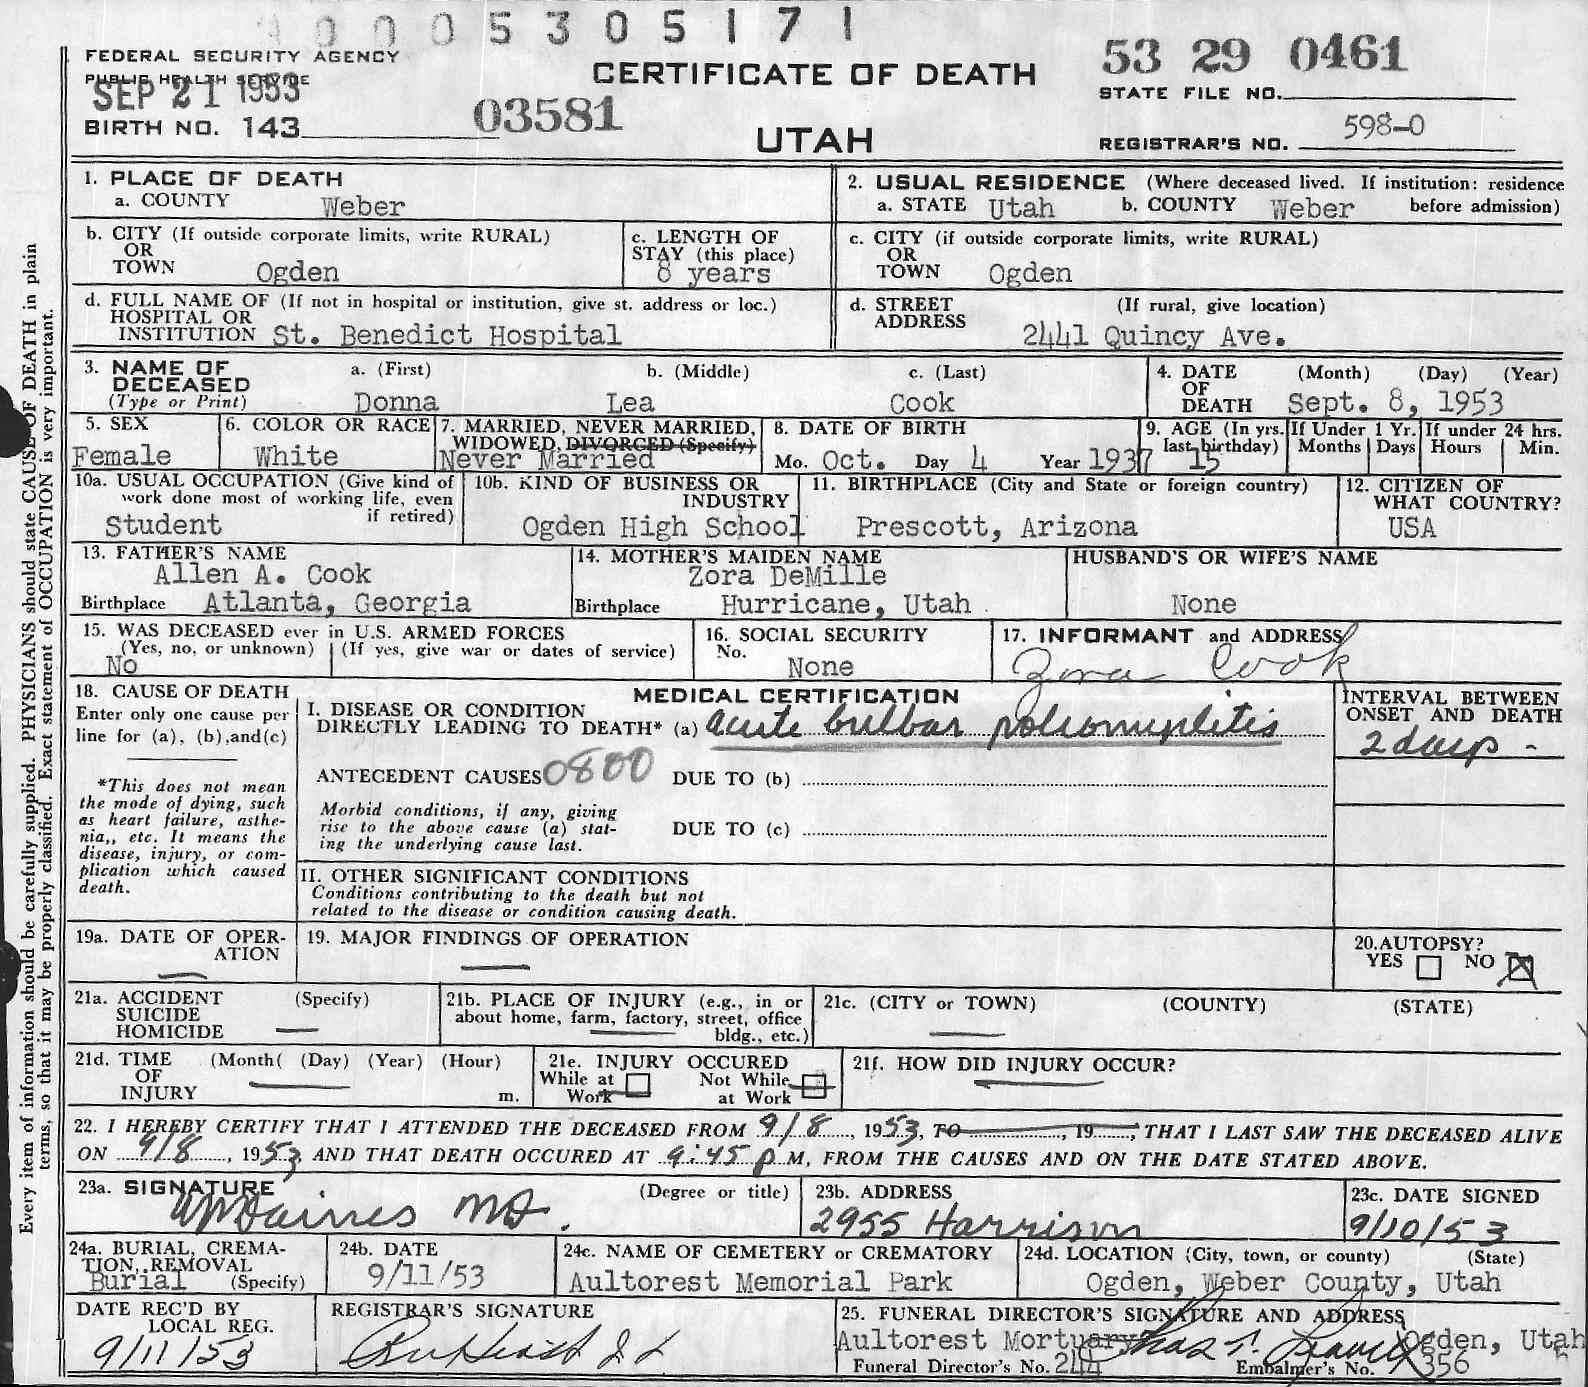 0005305171
FEDERAL SECURITY AGENCY
PUBLIC HEALTH SERVICE
SEP 21 1953
BIRTH NO. 143
03581
CERTIFICATE OF DEATH
UTAH
53 29 0461
STATE FILE NO.
REGISTRAR'S NO. 598-0
Every item of information should be carefully supplied. PHYSICIANS should state CAUSE OF DEATH in plain
terms, so that it may be properly classified. Exact statement of OCCUPATION is very important.
1. PLACE OF DEATH
a. COUNTY Weber
2. USUAL RESIDENCE (Where deceased lived. If institution: residence
a. STATE Utah b. COUNTY Weber before admission)
b. CITY (If outside corporate limits, write RURAL)
OR
TOWN Ogden
c. LENGTH OF
STAY (this place)
8 years
c. CITY (if outside corporate limits, write RURAL)
OR
TOWN Ogden
d. FULL NAME OF (If not in hospital or institution, give st. address or loc.)
HOSPITAL OR
INSTITUTION St. Benedict Hospital
d. STREET (If rural, give location)
ADDRESS
2441 Quincy Ave.
3. NAME OF a. (First) b. (Middle) c. (Last)
DECEASED
(Type or Print) Donna Lea Cook
4. DATE (Month) (Day) (Year)
OF
DEATH Sept. 8, 1953
5. SEX
Female
6. COLOR OR RACE
White
7. MARRIED, NEVER MARRIED,
WIDOWED, DIVORCED (Specify)
Never Married
8. DATE OF BIRTH
Mo. Oct. Day 4 Year 1937
9. AGE (In yrs.
last birthday)
15
If Under 1 Yr.
Months Days
If under 24 hrs.
Hours Min.
10a. USUAL OCCUPATION (Give kind of
work done most of working life, even
if retired)
Student
10b. KIND OF BUSINESS OR
INDUSTRY
Ogden High School
11. BIRTHPLACE (City and State or foreign country)
Prescott, Arizona
12. CITIZEN OF
WHAT COUNTRY?
USA
13. FATHER'S NAME
Allen A. Cook
Birthplace Atlanta, Georgia
14. MOTHER'S MAIDEN NAME
Zora DeMille
Birthplace Hurricane, Utah
HUSBAND'S OR WIFE'S NAME
None
15. WAS DECEASED ever in U.S. ARMED FORCES
(Yes, no, or unknown) (If yes, give war or dates of service)
No
16. SOCIAL SECURITY
No.
None
17. INFORMANT and ADDRESS
Zora Cook
18. CAUSE OF DEATH
Enter only one cause per
line for (a), (b),and(c)
*This does not mean
the mode of dying, such
as heart failure, asthe-
nia,, etc. It means the
disease, injury, or com-
plication which caused
death.
MEDICAL CERTIFICATION
I. DISEASE OR CONDITION
DIRECTLY LEADING TO DEATH* (a) acute bulbar poliomyelitis
ANTECEDENT CAUSES 0800 DUE TO (b)
Morbid conditions, if any, giving
rise to the above cause (a) stat-
ing the underlying cause last.
DUE TO (c)
II. OTHER SIGNIFICANT CONDITIONS
Conditions contributing to the death but not
related to the disease or condition causing death.
INTERVAL BETWEEN
ONSET AND DEATH
2 days -
19a. DATE OF OPER-
ATION
19. MAJOR FINDINGS OF OPERATION
20.AUTOPSY?
YES NO
21a. ACCIDENT (Specify)
SUICIDE
HOMICIDE
21b. PLACE OF INJURY (e.g., in or
about home, farm, factory, street, office
bldg., etc.)
21c. (CITY or TOWN) (COUNTY) (STATE)
21d. TIME (Month( (Day) (Year) (Hour)
OF
INJURY m.
21e. INJURY OCCURED
While at Not While
Work at Work
21f. HOW DID INJURY OCCUR?
22. I HEREBY CERTIFY THAT I ATTENDED THE DECEASED FROM 9/8, 1953, TO, 19, THAT I LAST SAW THE DECEASED ALIVE
ON 9/8, 1953 AND THAT DEATH OCCURED AT 9:45 p M, FROM THE CAUSES AND ON THE DATE STATED ABOVE.
23a. SIGNATURE (Degree or title)
Daines MD.
23b. ADDRESS
2955 Harrison
23c. DATE SIGNED
9/10/53
24a. BURIAL, CREMA-
TION, REMOVAL
Burial (Specify)
24b. DATE
9/11/53
24c. NAME OF CEMETERY or CREMATORY
Aultorest Memorial Park
24d. LOCATION (City, town, or county) (State)
Ogden, Weber County, Utah
DATE REC'D BY
LOCAL REG.
9/11/53
REGISTRAR'S SIGNATURE
25. FUNERAL DIRECTOR'S SIGNATURE AND ADDRESS
Aultorest Mortuary Ogden, Utah
Funeral Director's No. 244 Embalmer's No. 356